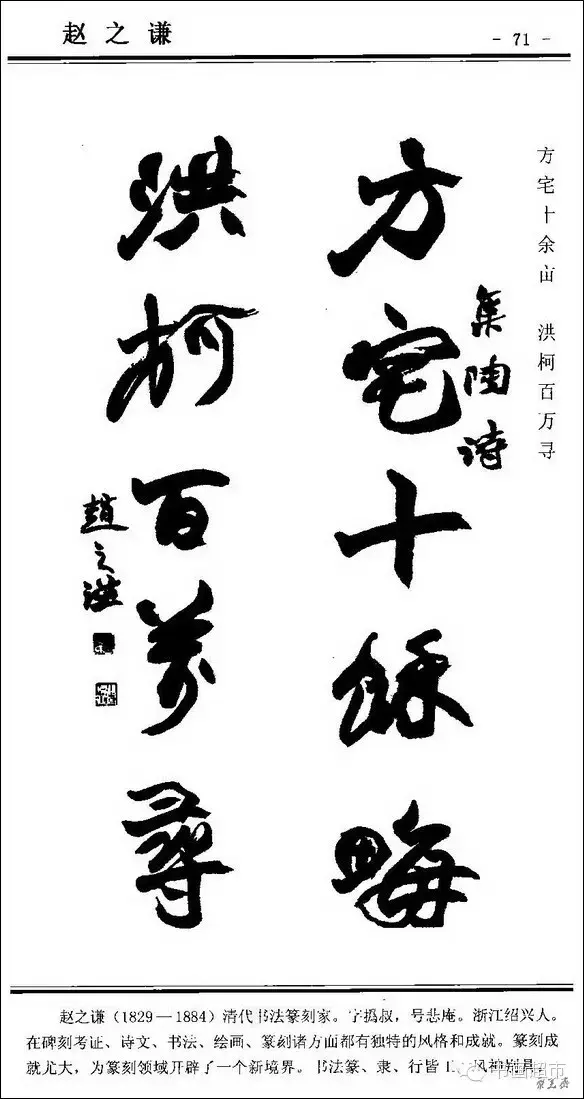 赵之谦
- 71 -
方宅十余亩 洪柯百万寻
集陶诗
方宅十馀畮
洪柯百万尋
趙之謙
赵之谦（1829—1884）清代书法篆刻家。字㧑叔，号悲庵。浙江绍兴人。
在碑刻考证、诗文、书法、绘画、篆刻诸方面都有独特的风格和成就。篆刻成
就尤大，为篆刻领域开辟了一个新境界。书法篆、隶、行皆工，风神别具。
中国超市